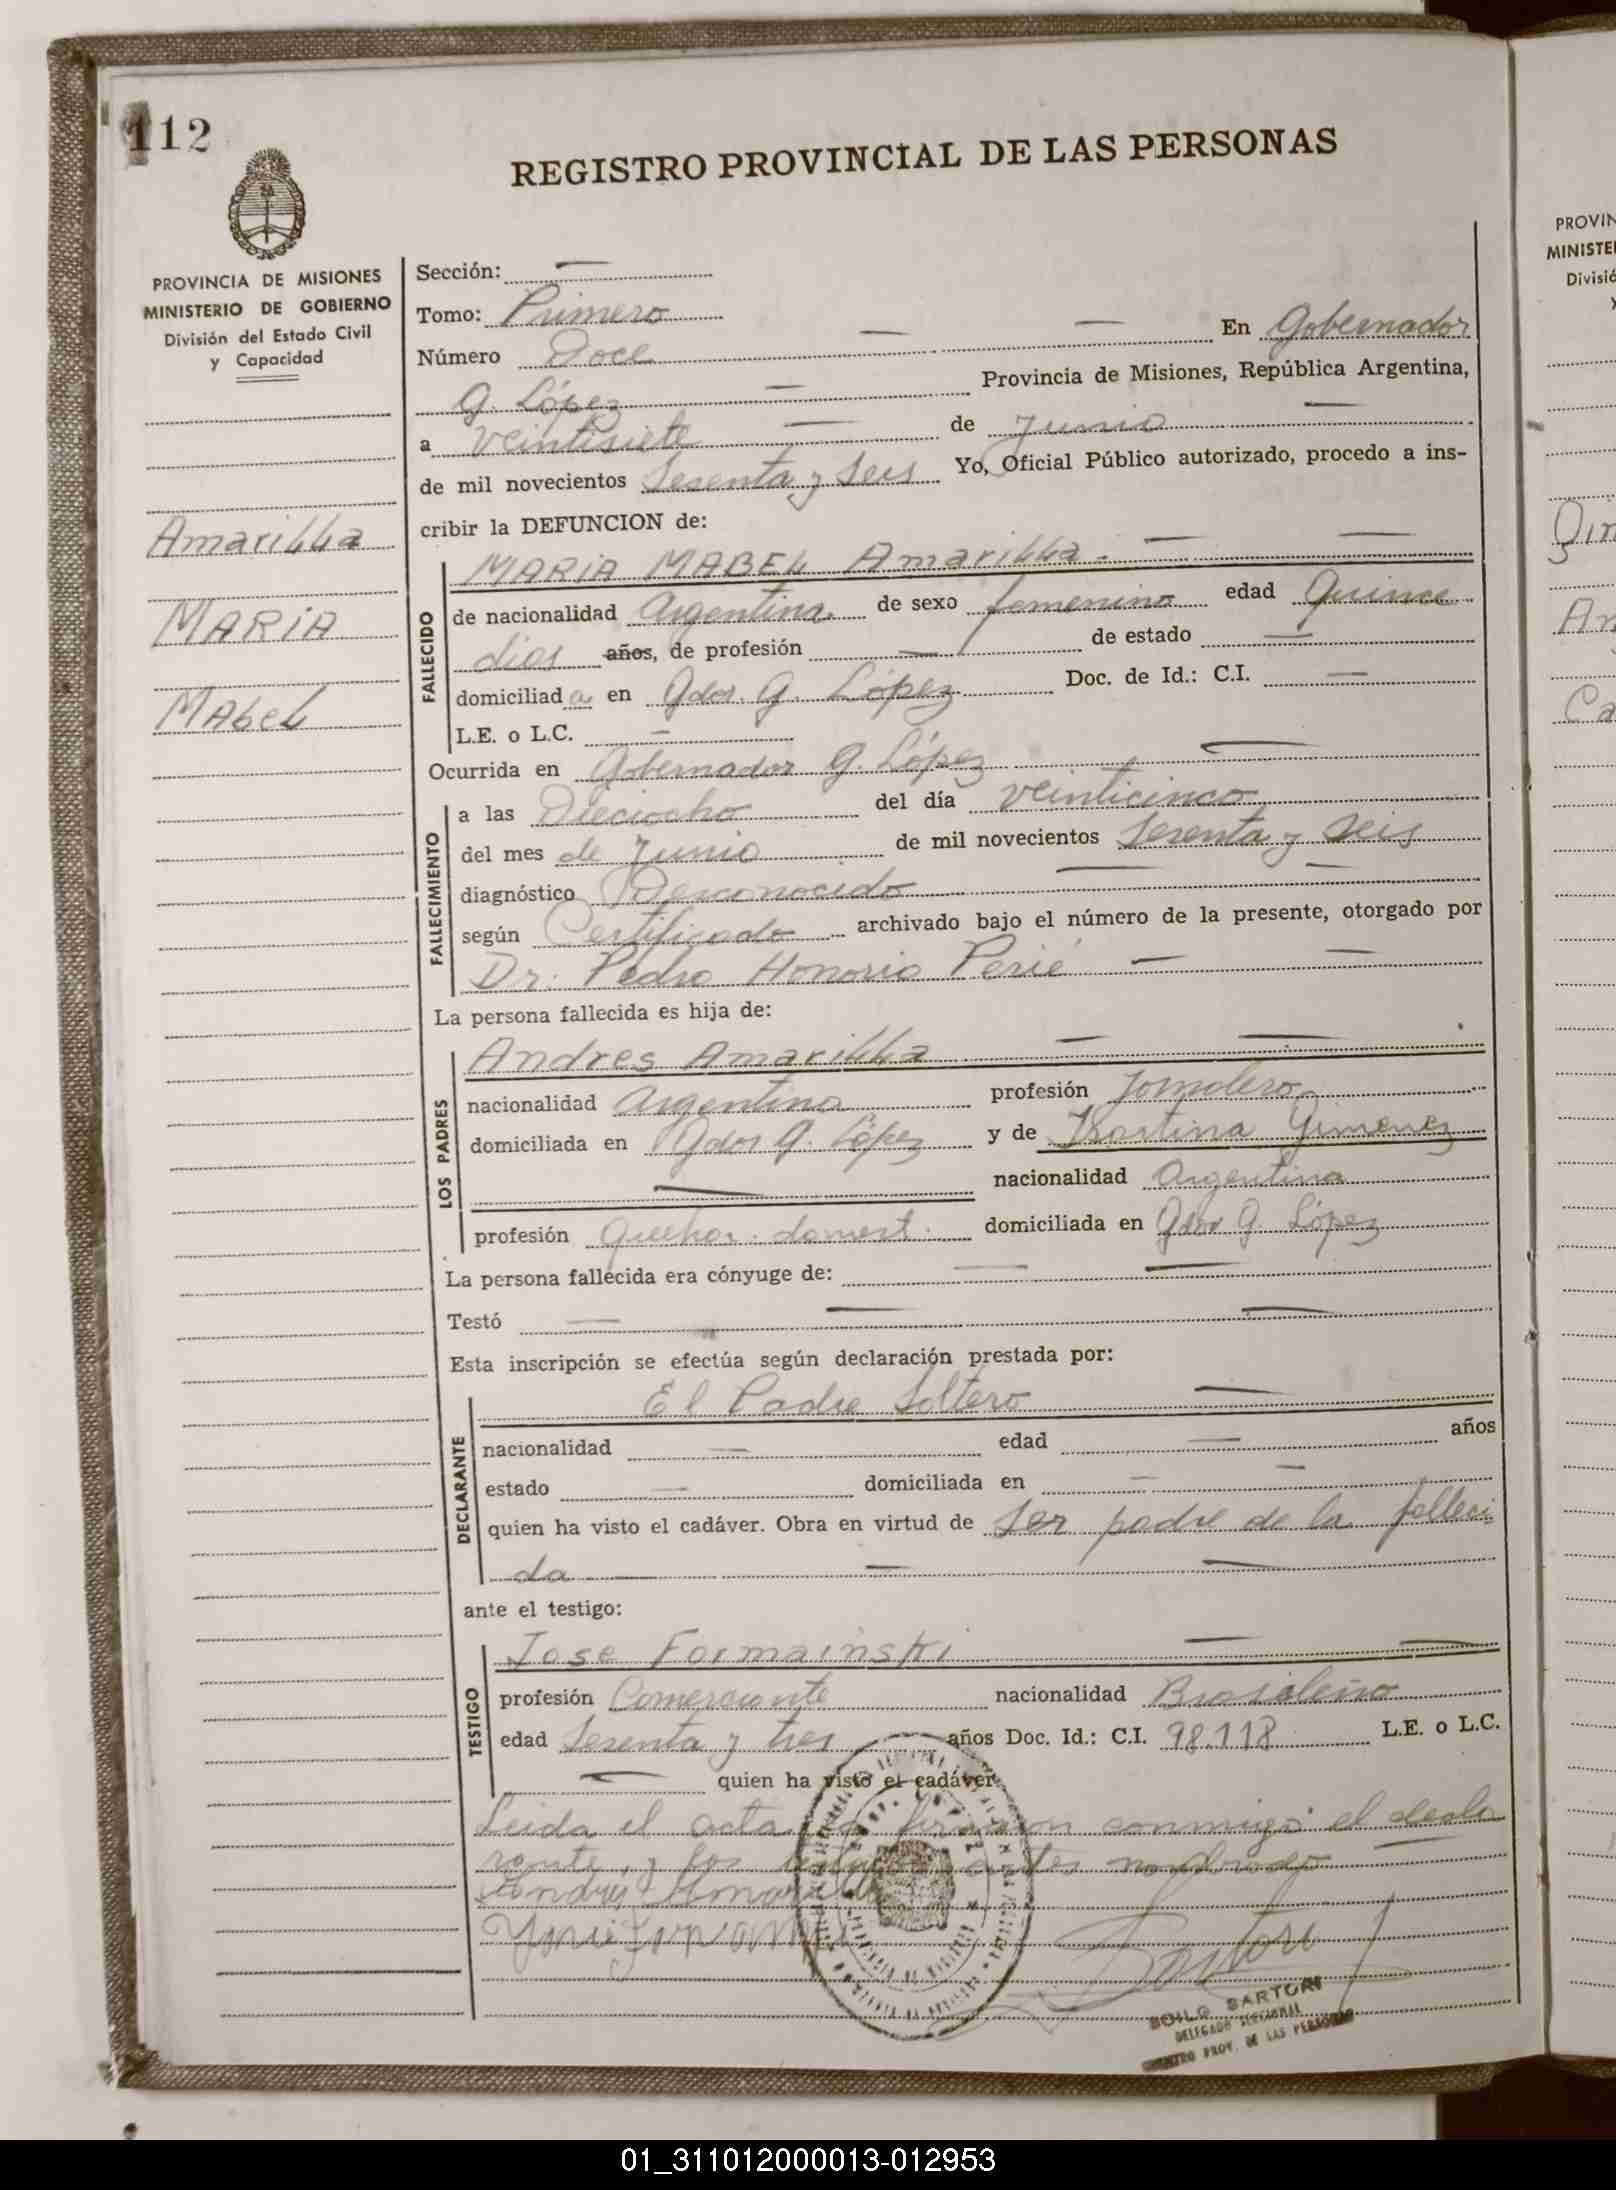 112
REGISTRO PROVINCIAL DE LAS PERSONAS
PROVINCIA DE MISIONES
MINISTERIO DE GOBIERNO
División del Estado Civil
y Capacidad
Amarilla
MARIA
MABEL
Sección: —
Tomo: Primero
Número Doce — — En Gobernador
G. López — Provincia de Misiones, República Argentina,
a veintisiete — de Junio —
de mil novecientos Sesenta y Seis Yo, Oficial Público autorizado, procedo a ins-
cribir la DEFUNCION de:
FALLECIDO
MARIA MABEL Amarilla. — —
de nacionalidad Argentina de sexo femenino edad Quince
dias años, de profesión — de estado —
domiciliada en Gdor. G. López Doc. de Id.: C.I. —
L.E. o L.C. —
Ocurrida en Gobernador G. López —
FALLECIMIENTO
a las Dieciocho del día veinticinco
del mes de Junio de mil novecientos Sesenta y Seis
diagnóstico Desconocido — —
según Certificado archivado bajo el número de la presente, otorgado por
Dr. Pedro Honorio Perié — —
La persona fallecida es hija de:
LOS PADRES
Andres Amarilla — —
nacionalidad Argentina profesión Jornalero
domiciliada en Gdor G. López y de Gimenez
— nacionalidad Argentina
profesión Quehac. domest. domiciliada en Gdor G. López
La persona fallecida era cónyuge de: — —
Testó — — —
Esta inscripción se efectúa según declaración prestada por:
DECLARANTE
El Padre Soltero —
nacionalidad — edad — años
estado — domiciliada en — —
quien ha visto el cadáver. Obra en virtud de Ser padre de la falleci
da — — —
ante el testigo:
TESTIGO
Jose Formainski — —
profesión Comerciante nacionalidad Brasileño
edad Sesenta y tres años Doc. Id.: C.I. 98.118 L.E. o L.C.
— quien ha visto el cadáver.
Leida el acta la firmaron conmigo el decla
rante, y los antes nombrados
Andres Amarilla
Sartori
SARTORI
DELEGADO SECCIONAL
PROV. DE LAS PERSONAS
PROVIN
MINISTE
Divisió
y
01_311012000013-012953